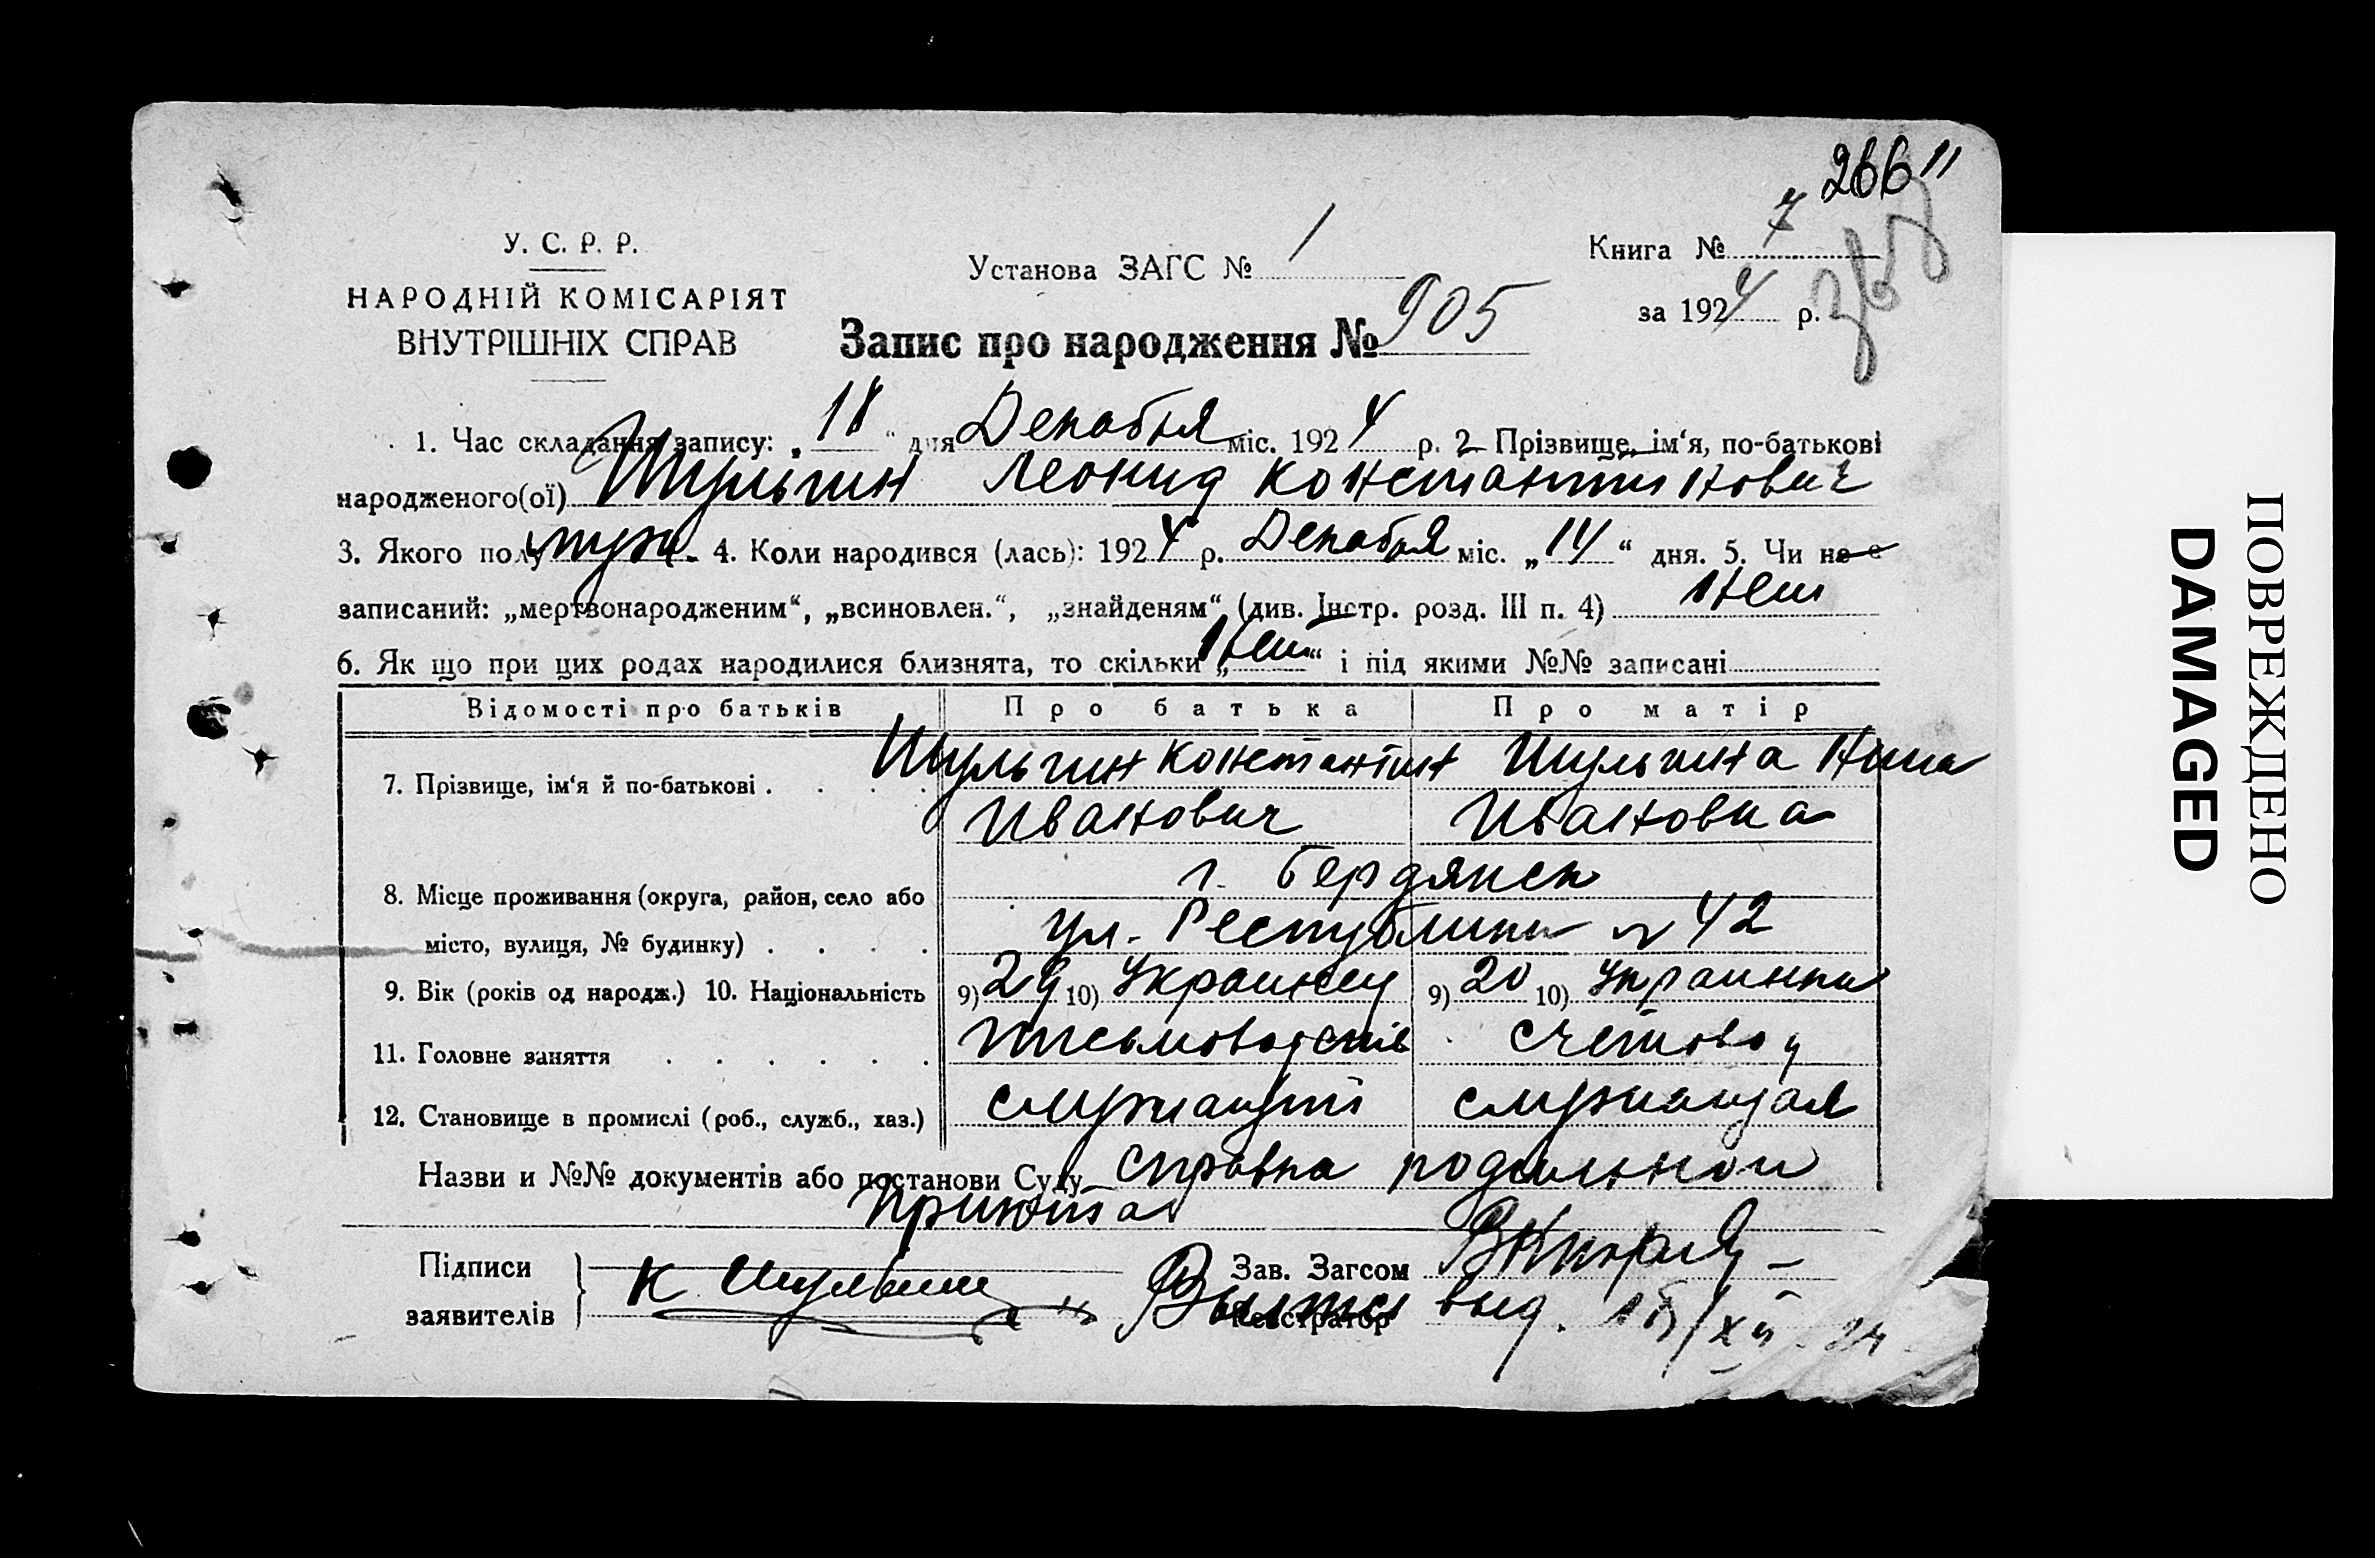 266 "
У. С. Р. Р.
НАРОДНІЙ КОМІСАРІЯТ
ВНУТРІШНІХ СПРАВ
Установа ЗАГС № 1
Книга № 7
за 1924 р.
Запис про народження № 905
1. Час складання запису: „18“ дня Декабря міс. 1924 р. 2 Прізвище, ім‘я, по-батькові
народженого(ої) Шульгин Леонид Константинович
3. Якого полу муж. 4. Коли народився (лась): 1924 р. Декабря міс. „14“ дня. 5. Чи не є
записаний: „мертвонародженим“, „всиновлен.“, „знайденям“ (див. Інстр. розд. III п. 4) Нет
6. Як що при цих родах народилися близнята, то скільки „Нет“ і під якими №№ записані
Відомості про батьків Про батька Про матір
7. Прізвище, ім‘я й по-батькові . . . . Шульгин Константин Шульгина Нина
Иванович Ивановна
8. Місце проживання (округа, район, село або г. Бердянск
місто, вулиця, № будинку) . . . . ул. Республики № 42
9. Вік (років од народж.) 10. Національність 9) 29 10) Украинец 9) 20 10) Украинка
11. Головне заняття . . . . . . письмоводитель счетовод
12. Становище в промислі (роб., служб., хаз.) служащий служащая
Назви и №№ документів або постанови Суду Справка родильного
приюта
Підписи К Шульгин Зав. Загсом
заявителів Реєстратор
Выпись выд. XII 24
ПОВРЕЖДЕНО
DAMAGED